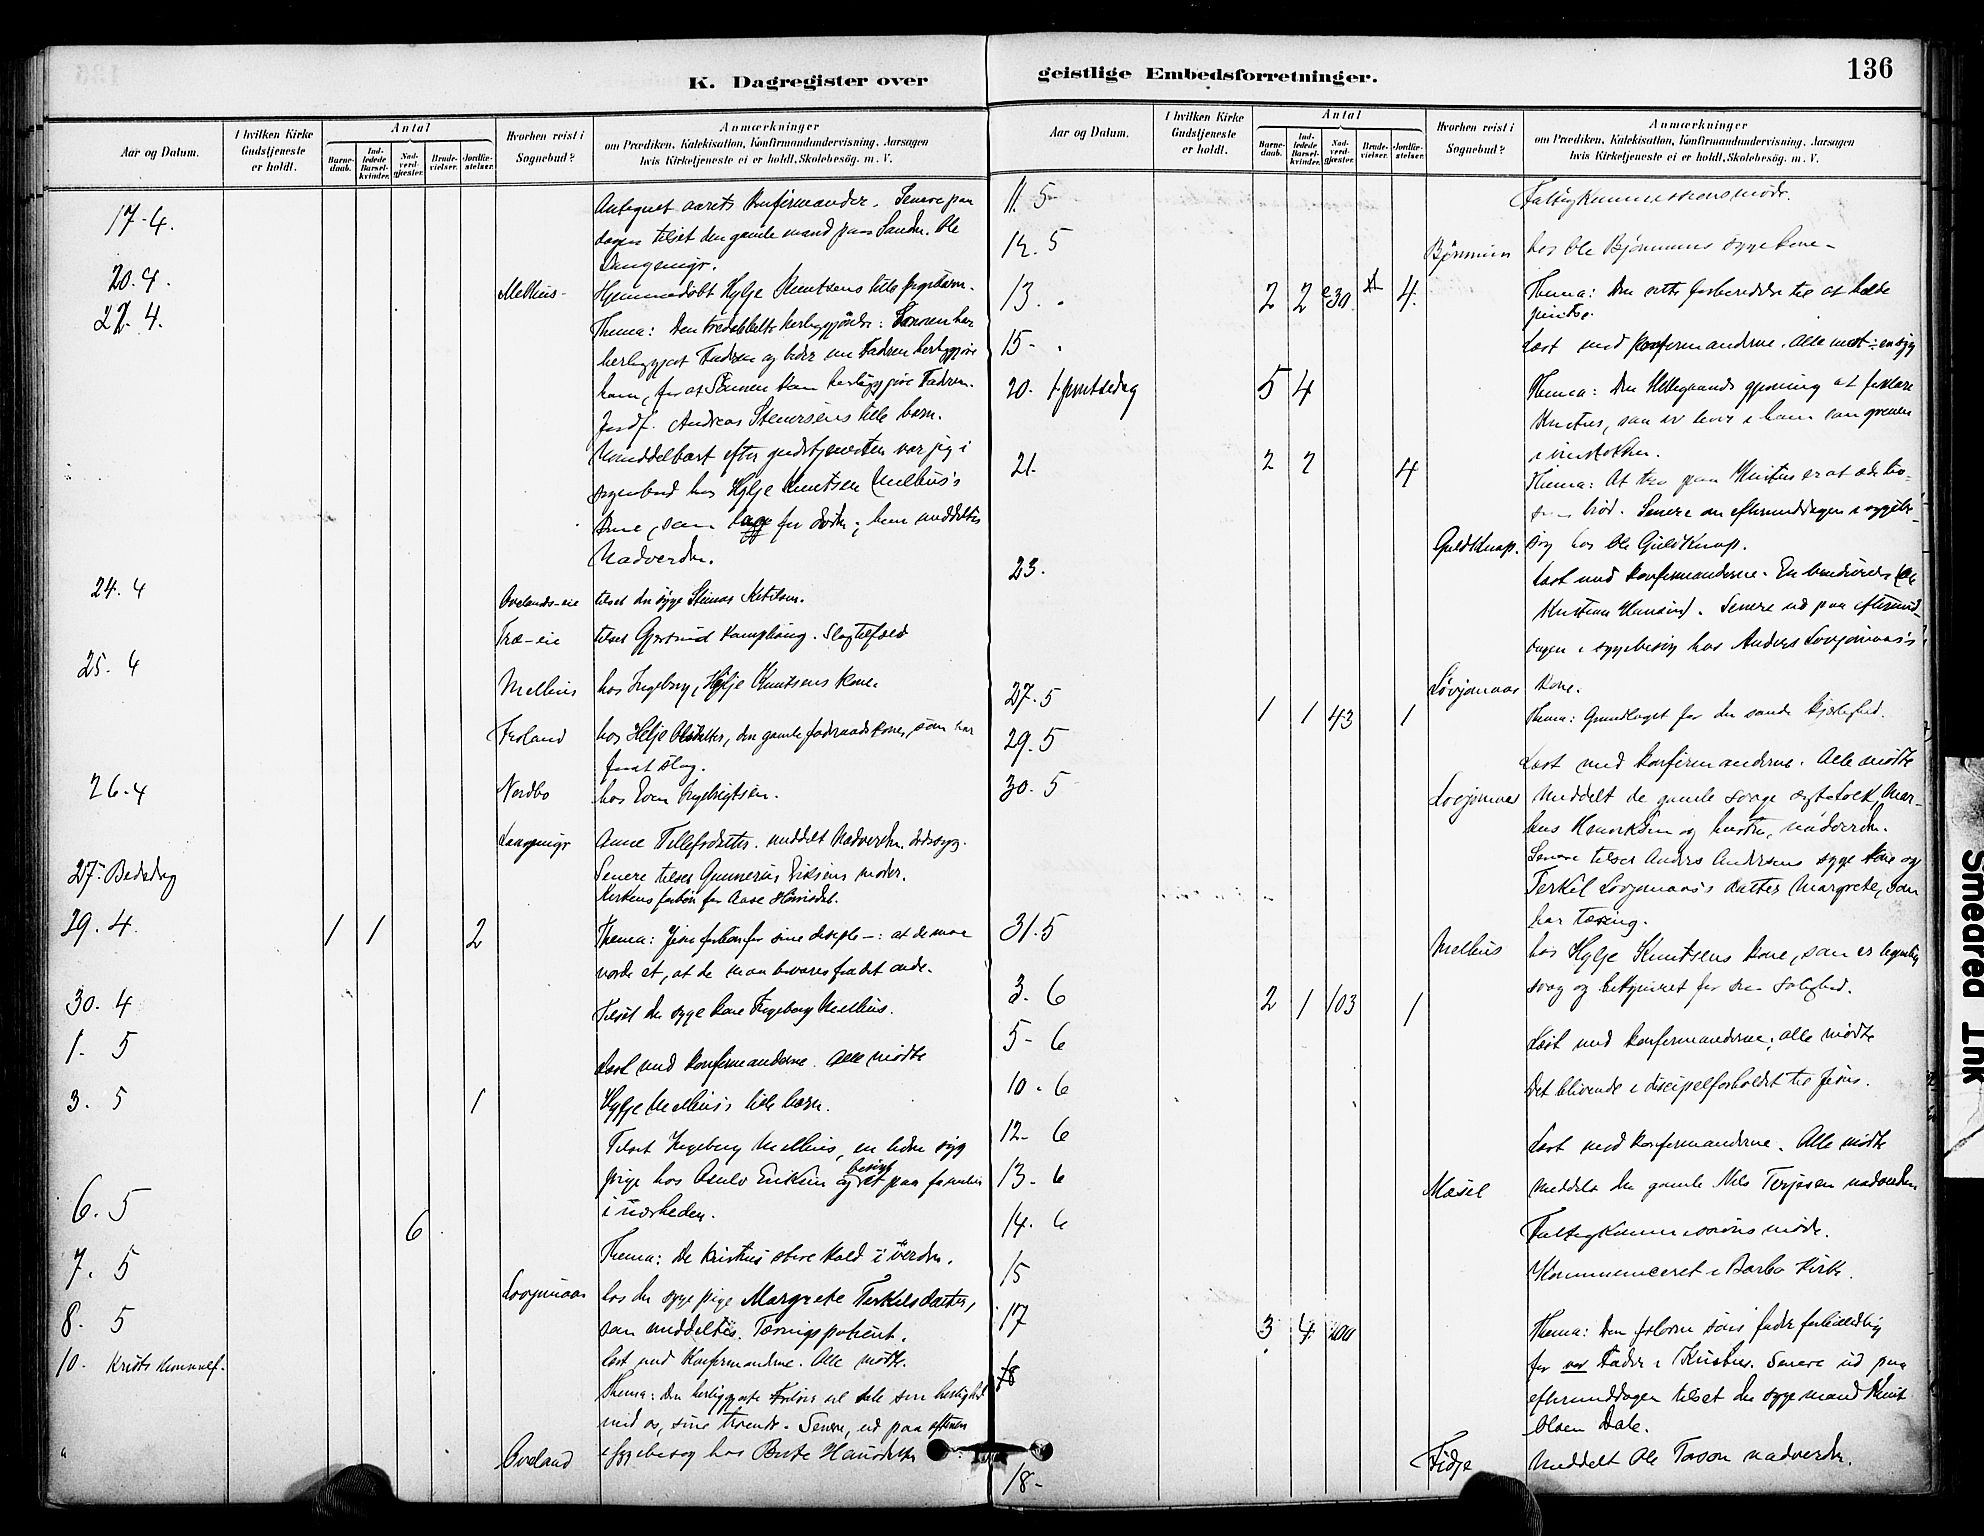 K. Dagregister over
geistlige Embedsforretninger.
136
Aar og Datum.
I hvilken Kirke
Gudstjeneste
er holdt.
Antal
Barne-
daab.
Ind-
ledede
Barsel-
kvinder.
Nad-
verd-
gjæster.
Brude-
vielser.
Jordfæ-
stelser.
Hvorhen reist i
Sognebud?
Anmærkninger
om Prædiken, Katekisation, Konfirmandundervisning, Aarsagen
hvis Kirketjeneste ei er holdt, Skolebesög. m. V.
17-4. Antegnet aarets Konfirmander. Senere paa
dagen tilset den gamle mand paa Sandn. Ole
20.4. Melhus- Hjemmedöbt Hylje Knutsens lille
22. 4. Thema: Den tredobbelte herliggjörelse: Sönnen har
herliggjort Faderen og beder om Faderen herliggjöre
ham, for at Sönnen kan herliggjöre Faderen.
Jordf. Andreas Steensens lille barn.
Umiddelbart efter gudstjenesten var jeg i
sognebud hos Hylje Knutsen Melhus's
kone, som laa for döden; hun meddeltes
Nadverden.
24. 4 Ovelands-eie tilset den syge Stenar Ketilsen.
Træ-eie tilset Gjertrud Kamphaug. Slagtilfæld
25. 4 Melhus hos Ingeborg, Hylje Knutsens kone.
Froland hos Helje Olsdatter, den gamle föderaadskone, som har
faaet slag.
26-4 Nordbo hos Even Ingebrigtsen.
Anne Tellefsdatter. meddelt Nadverden. dödssyg.
27- Bededag Senere tilset Gunnerius Eriksens moder.
Kirkens forbön for Aase
29. 4. 1 1 2 Thema: Jesu forbön for sine disciple -: at de maa
vorde et, at de maa bevares fra det onde.
30. 4 Tilset den syge kone Ingeborg Melhus.
1. 5 Læst med konfirmanderne. Alle mödte
3. 5 1 Hylje Melhus's lille barn.
Tilset Ingeborg Melhus, en liden syg
pige hos Osulv Eriksen og besögt et par familier
i nærheden.
6. 5 6
7. 5 Thema: De kristnes store kald i verden.
Lövjomaas hos den syge pige Margrete Terkelsdatter,
8. 5 som meddeltes. Tæringspatient.
10. Kristi Himmelf. læst med Konfirmanderne. Alle mödte.
Thema: Den herliggjorte Frelser vil dele sin herlighed
med os, sine troende. Senere, ud paa eftermi
" Oveland i sygebesög hos Berte Hansdatter
Aar og Datum.
I hvilken Kirke
Gudstjeneste
er holdt.
Antal
Barne-
daab.
Ind-
ledede
Barsel-
kvinder.
Nad-
verd-
gjæster.
Brude-
vielser.
Jordfæ-
stelser.
Hvorhen reist i
Sognebud?
Anmærkninger
om Prædiken, Katekisation, Konfirmandundervisning, Aarsagen
hvis Kirketjeneste ei er holdt, Skolebesög. m. V.
11. 5 Fattigkommissionsmöde.
12. 5 hos Ole syge kone-
13. " 2 2 30 4. Thema: Den rette forberedelse til at holde
pintse.
15- " Læst med konfirmanderne. Alle mödt
20. 1 pintsedag 5 4 Thema: Den Helligaands gjerning at forklare
Kristus, saa vi bliver i ham som grenen
i vinstokken.
21. 2 2 4 Thema: At tro paa Kristus er at æde liv-
sens bröd. Senere om eftermiddagen i sygebe-
Guldknap. sög hos Ole Guldknap.
23. Læst med Konfirmanderne. En
Kristian Hansen). Senere ud paa eftermid-
dagen i sygebesög hos Anders Lövjomaas's
27. 5 Lövjomaas kone.
1 1 43 1 Thema: Grundlaget for den sande kjærlighed.
29. 5 Læst med konfirmanderne. Alle mödte
30. 5 Lövjomaas Meddelt de gamle svage ægtefolk, Mar-
kus Henriksen og hustru, nadverden.
Senere tilset Anders Andersens syge kone og
Terkil Lövjomaas's datter Margrete, som
har tæring.
31. 5 Melhus hos Hylje Knutsens kone, som er legemlig
svag og bekymret for sin salighed.
3. 6 2 1 103 1
5- 6 Læst med konfirmanderne; alle mödte
10. 6 Det blivende i discipelforholdet til Jesus.
12. 6 Læst med konfirmanderne. Alle mödte
13. 6 Mæsel Meddelt den gamle Nils Terjesen nadverden
14. 6 Fattigkommissionsmöde.
15 Kommuniceret i Barbo Kirke.
17 3 4 100 Thema: Den fortabte söns fader forbilledlig
for vor Fader i Kristus. Senere ud paa
18 eftermiddagen tilset den syge mand Knut
Olsen Dale.
18- Fidje Meddelt Ole Tovsen nadverden.
Smeared Ink